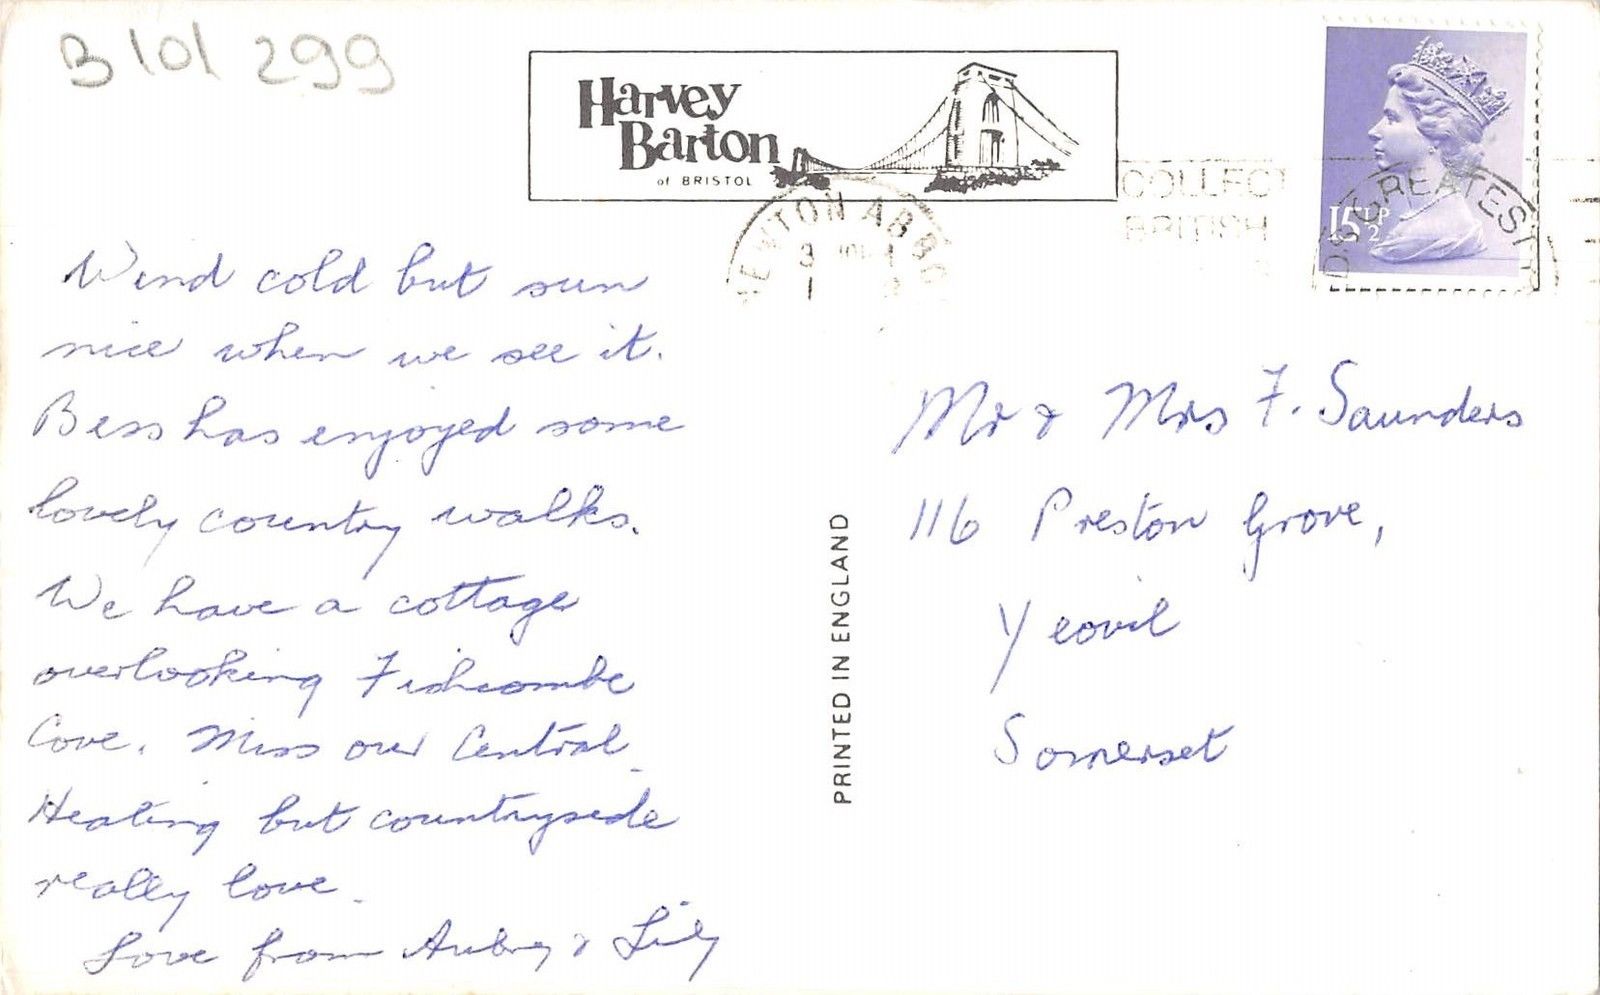 B 101 299
Harvey
Barton
of BRISTOL
COLLECT
BRITISH
NEWTON ABBO
GREATEST
15½P
Wind cold but sun
nice when we see it.
Bess has enjoyed some
lovely country walks.
We have a cottage
overlooking Fishcombe
Cove. Miss our Central
Heating but countryside
really love.
Love from Aubrey & Lily
PRINTED IN ENGLAND
Mr & Mrs F. Saunders
116 Preston Grove,
Yeovil
Somerset